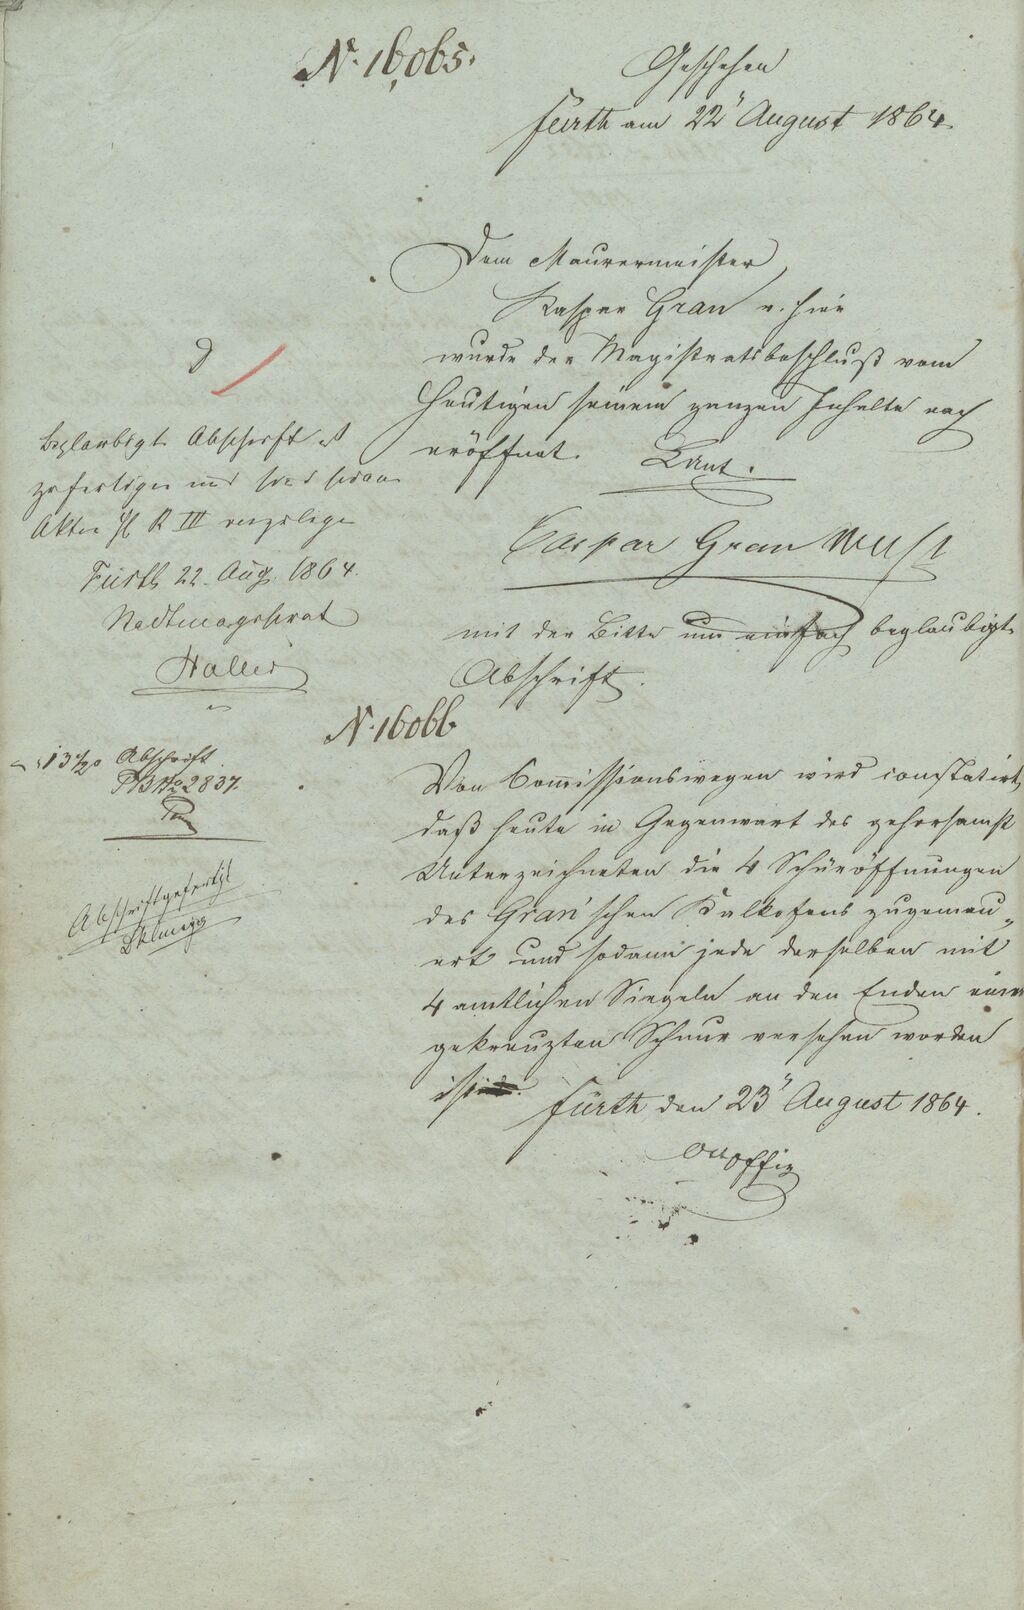 N. 16065.
Geschehen
Fürth am 22" August 1864.
Dem Maurermeister
Kaspar Gran v. hier
wurde der Magistratsbeschluß vom
Heutigen seinem ganzen Inhalte nach
eröffnet.
Caspar Gran
mit der Bitte um einfach beglaubigte
Abschrift.
beglaubigte Abschrift ist
zu fertigen und sodann
Akten R III vorzulegen
Fürth 22. Aug. 1864.
Stadtmagistrat
Haller
N. 16066
13 Abschrift
No 2837.
Abschrift gefertigt
Von Commissionswegen wird constatirt,
daß heute in Gegenwart des gehorsamst
Unterzeichneten die 4 Schüröffnungen
des Gran'schen Kalkofens zugemau„
ert und sodann jede derselben mit
4 amtlichen Siegeln an den Enden einer
gekreuzten Schnur versehen worden
ist.
Fürth den 23" August 1864.